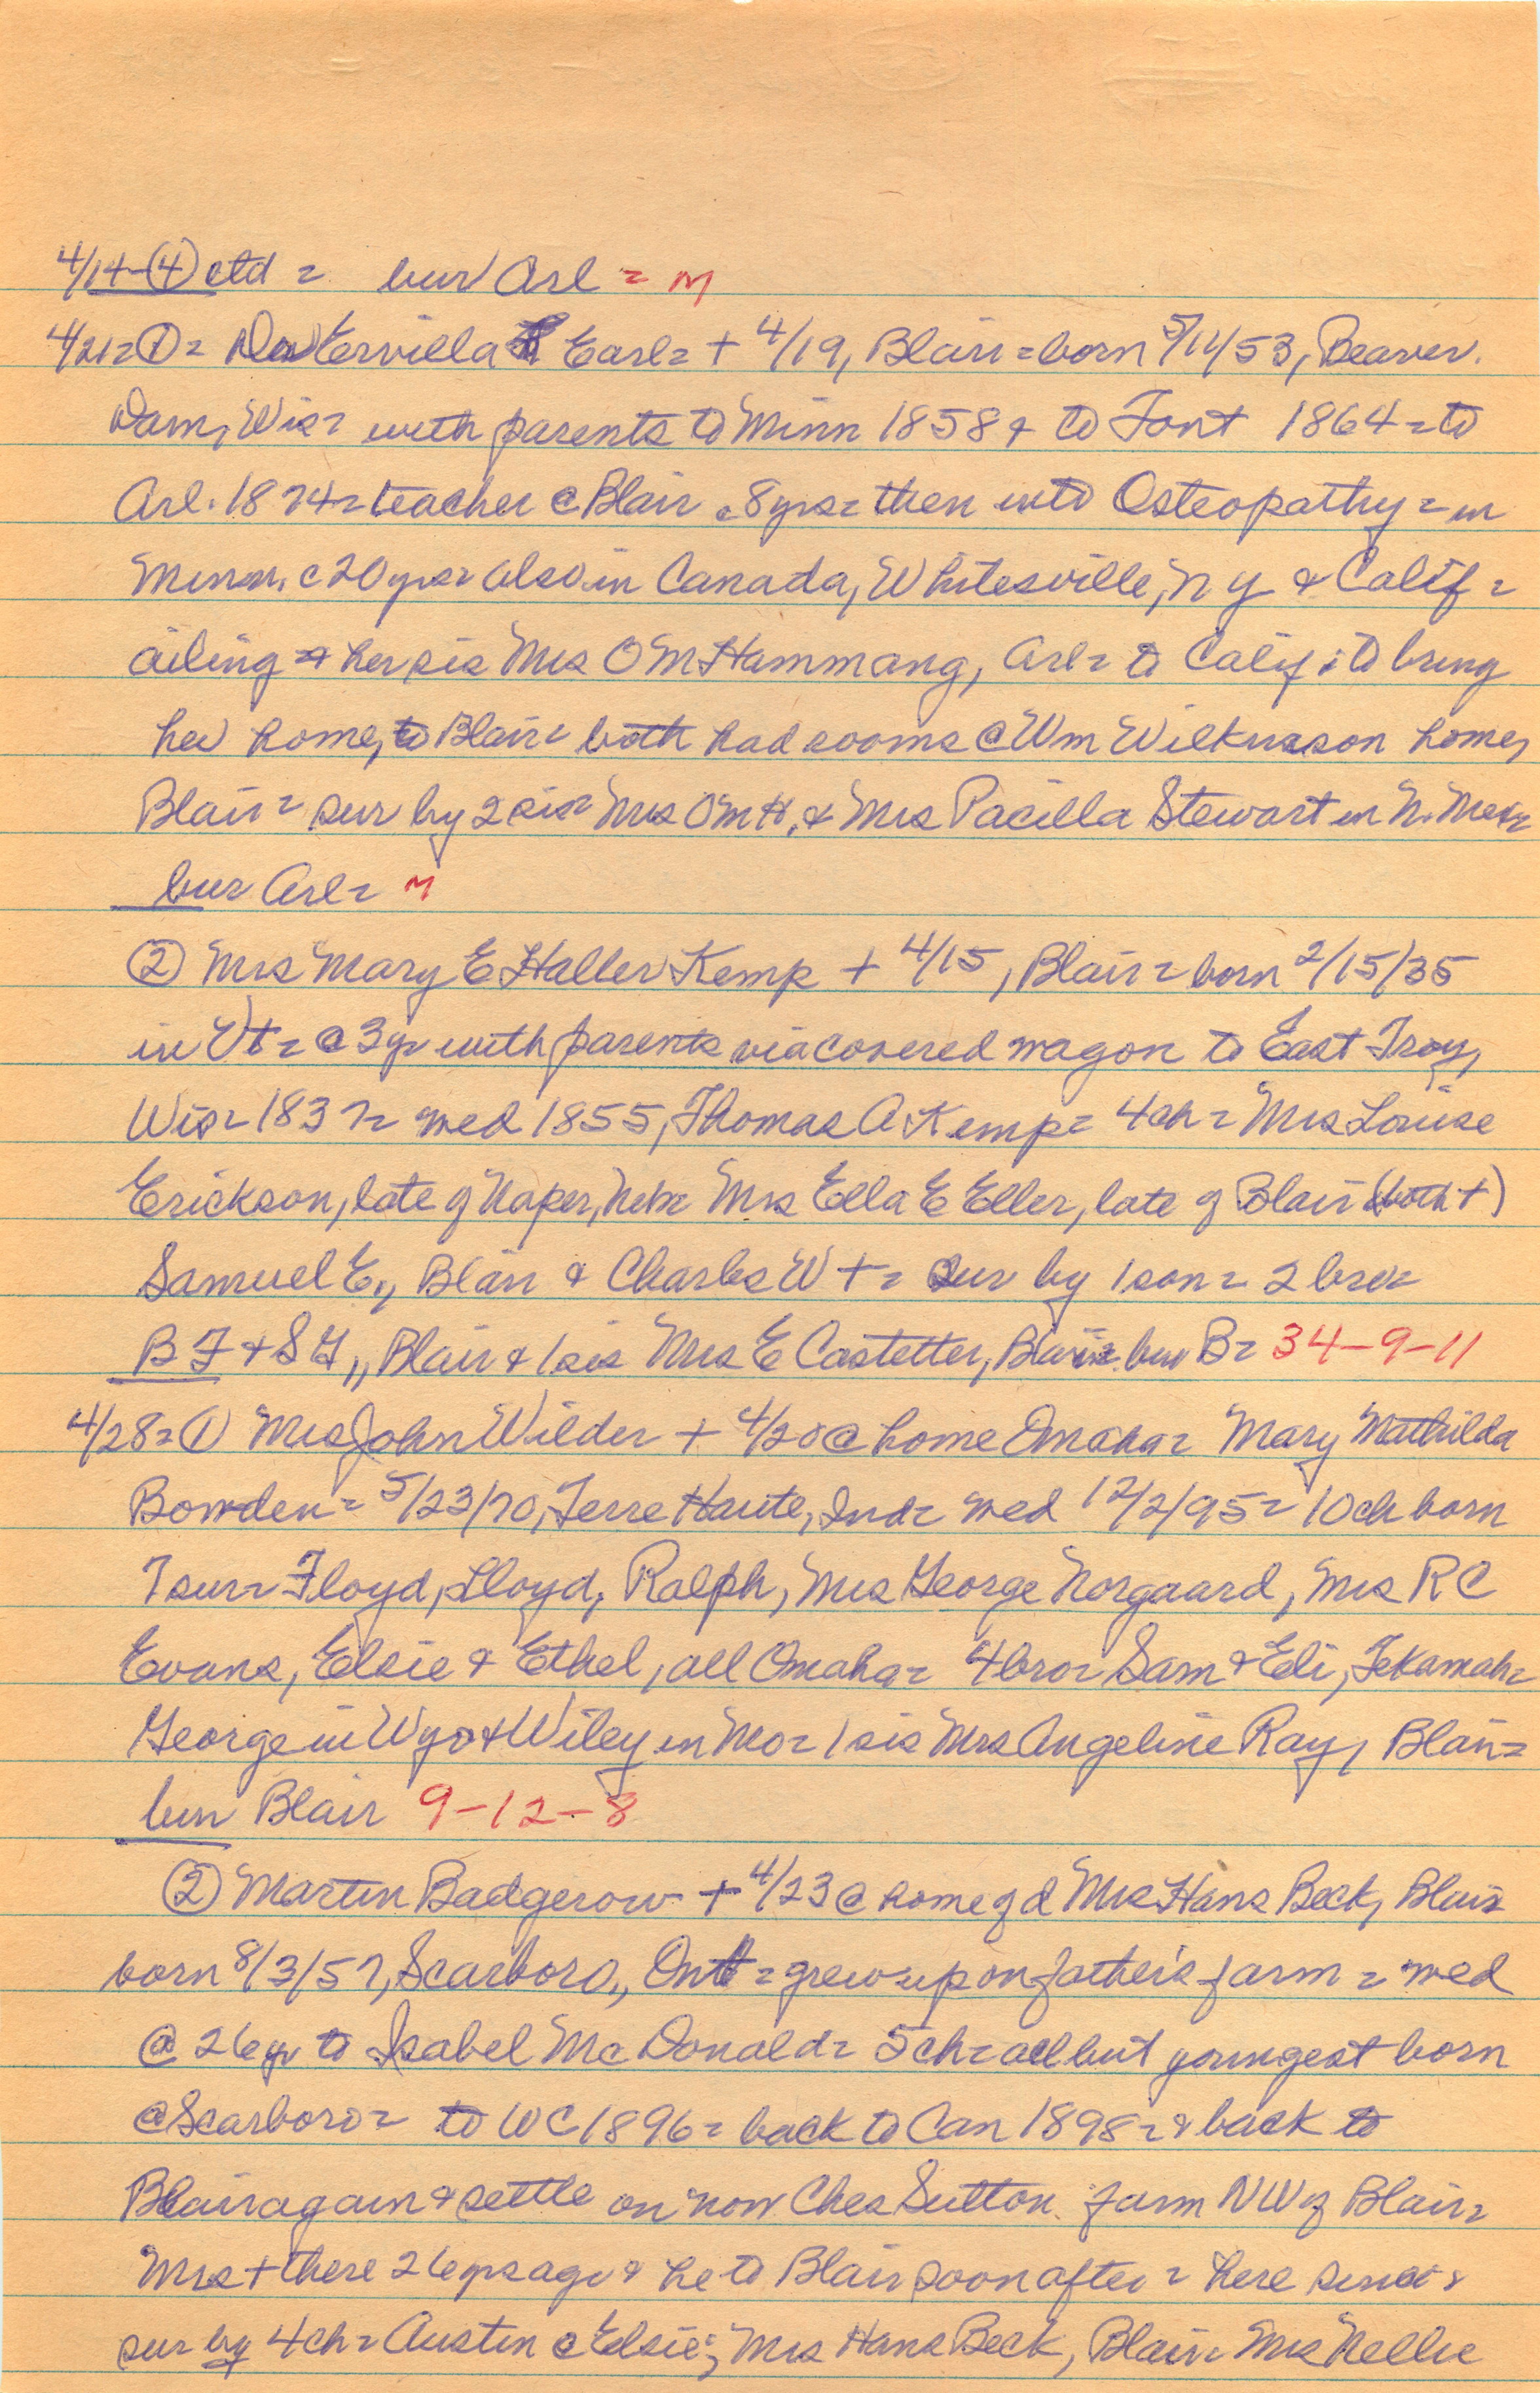 4/14-(4) ctd = bur Arl = M
4/21=(1)= Da Ervilla Earl= + 4/19, Blair = born 5/11/53, Beaver
Dam, Wis= with parents to Minn 1858 & to Font 1864 = to
Arl. 1874= teacher @ Blair c 8yrs= then into Osteopathy = in
Minn. c 20yrs= also in Canada, Whitesville, N Y & Calif =
ailing & her sis Mrs O M Hammang, Arl= to Calif to bring
her home, to Blair= both had rooms @ Wm Wilkinson home,
Blair = sur by 2 sis= Mrs OMH, & Mrs Pacilla Stewart in N. Mex=
bur Arl= M
(2) Mrs Mary E Haller Kemp + 4/15, Blair = born 2/15/35
in Vt= @ 3yr with parents via covered wagon to East Troy,
Wis= 1837= wed 1855, Thomas A Kemp= 4ch = Mrs Louise
Erickson, late of Naper, Neb= Mrs Ella E Eller, late of Blair (both +)
Samuel E., Blair & Charles W += sur by 1 son = 2 bro=
B F & S G,, Blair & 1 sis Mrs E Castetter, Blair= bur B= 34-9-11
4/28=(1) Mrs John Wilder + 4/20 @ home Omaha= Mary Mathilda
Bowden = 5/23/70, Terre Haute, Ind= wed 12/2/95= 10ch born
7 sur= Floyd, Lloyd, Ralph, Mrs George Norgaard, Mrs R C
Evans, Elsie & Ethel, all Omaha= 4 bro= Sam & Eli, Tekamah=
George in Wyo & Wiley in Mo= 1 sis Mrs Angeline Ray, Blair=
bur Blair 9-12-8
(2) Martin Badgerow + 4/23 @ home of d Mrs Hans Beck, Blair
born 8/3/57, Scarboro,, Ont = grew up on father's farm = wed
@ 26yr to Isabel McDonald= 5ch= all but youngest born
@ Scarboro= to WC 1896= back to Can 1898= & back to
Blair again & settle on now Ches Sutton farm NW of Blair=
Mrs + there 26yrs ago & he to Blair soon after = here since &
sur by 4ch= Austin @ Elsie; Mrs Hans Beck, Blair= Mrs Nellie